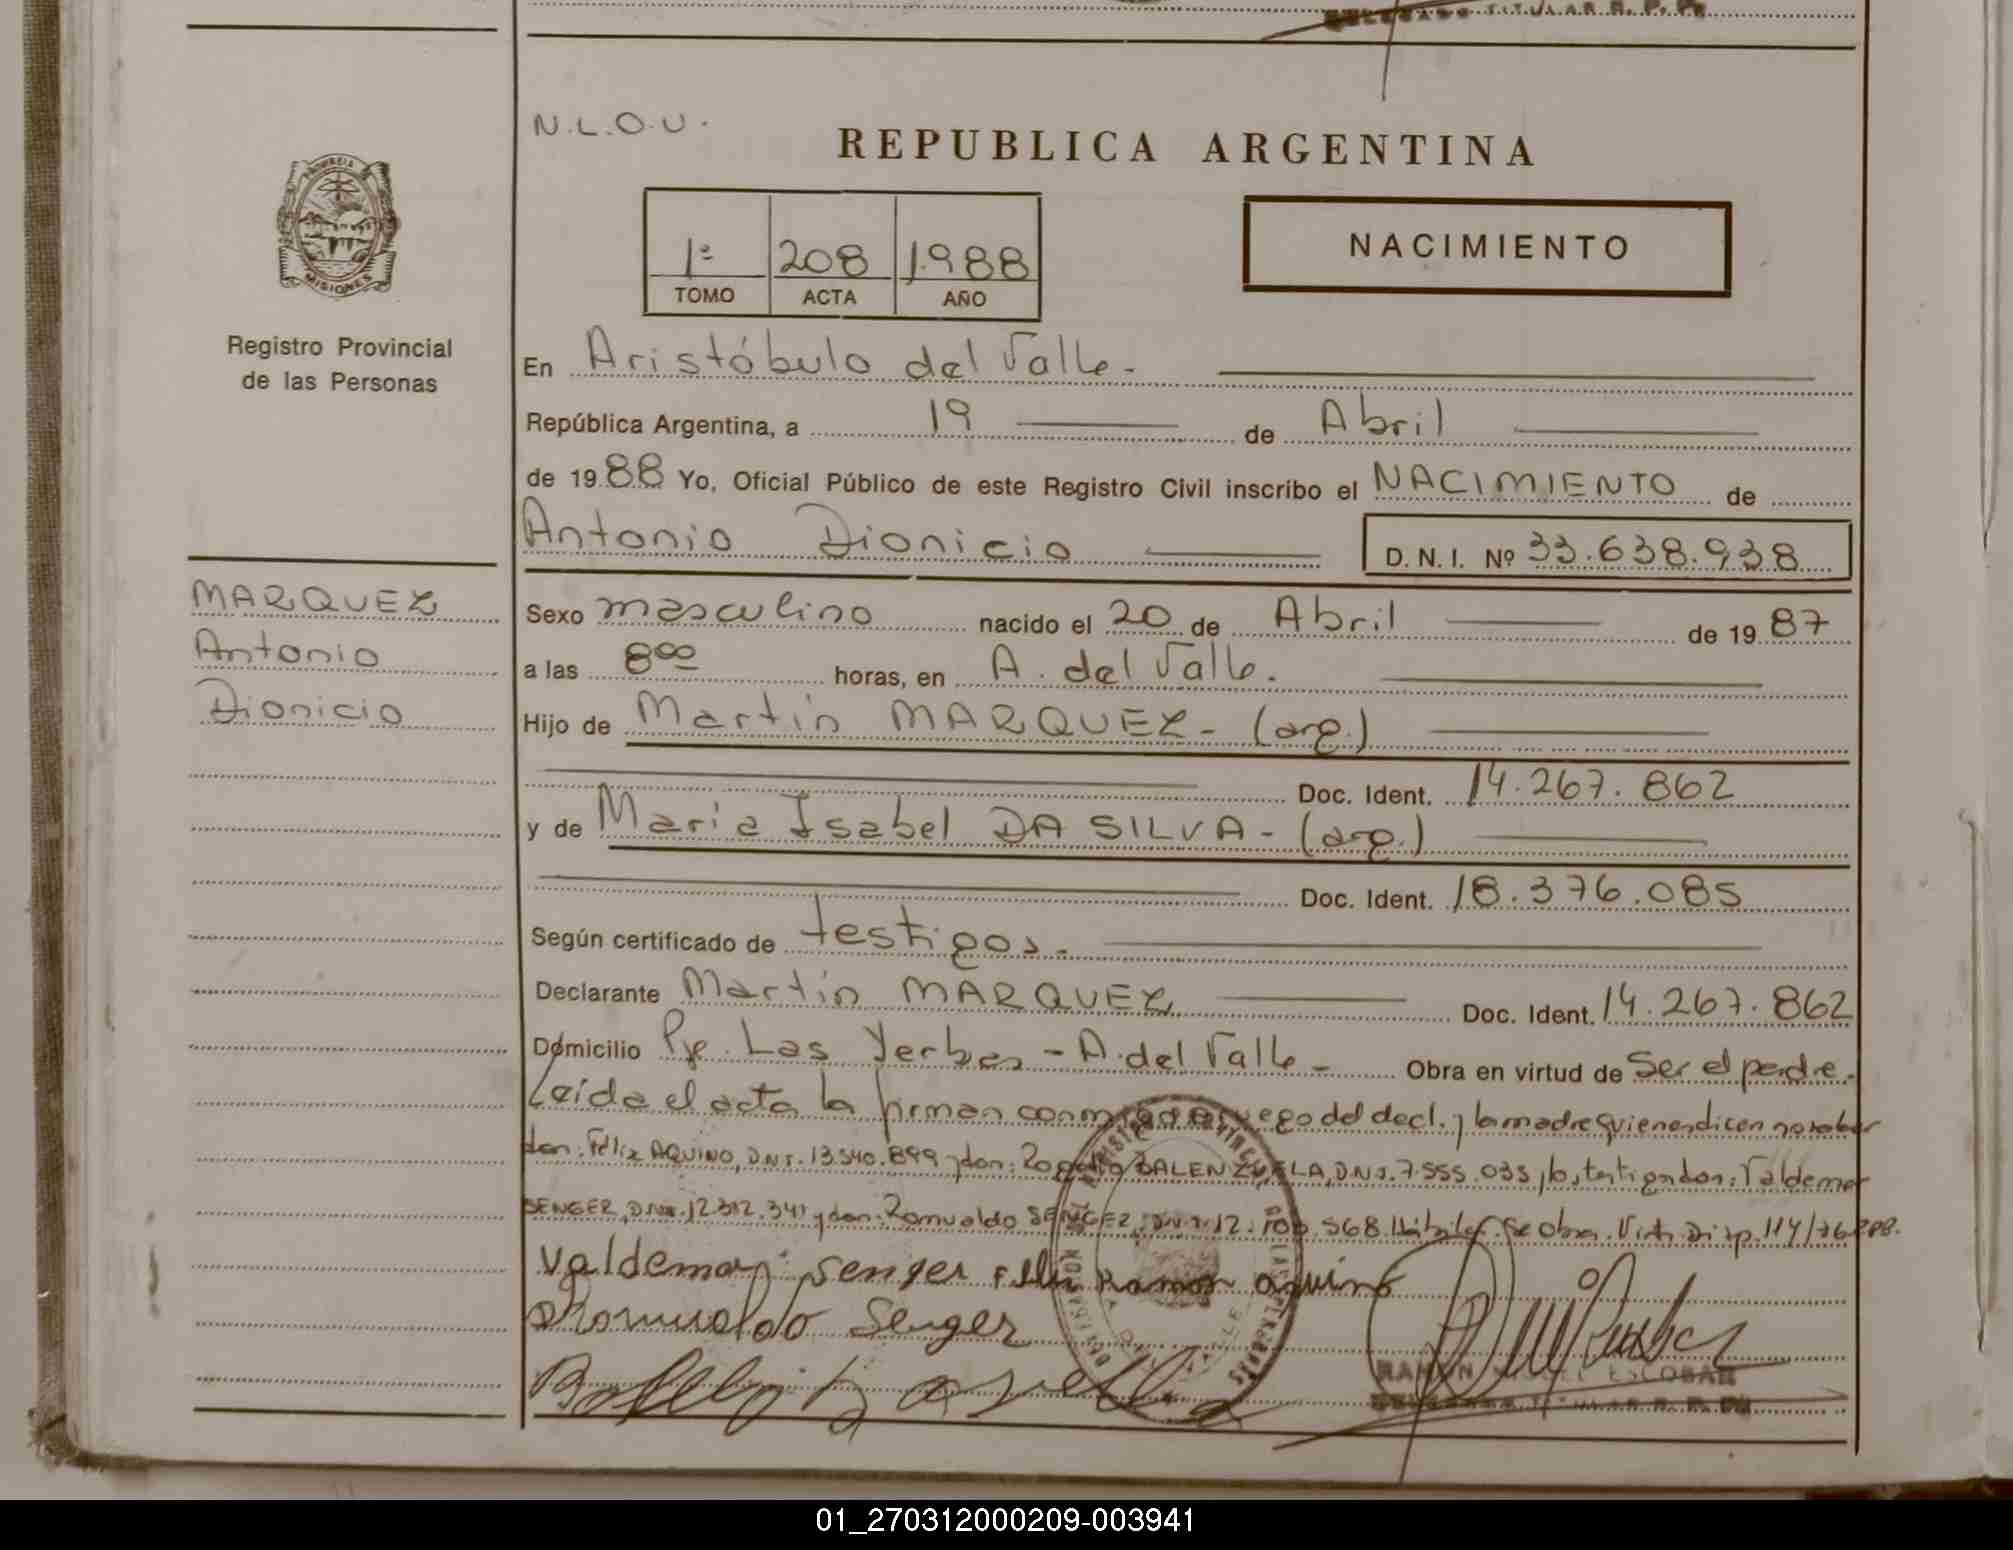 TITULAR R. P. Ps.
N.L.O.U.
REPUBLICA ARGENTINA
PROVINCIA
MISIONES
1º 208 1.988
TOMO ACTA AÑO
NACIMIENTO
Registro Provincial
de las Personas
En Aristóbulo del Valle.-
República Argentina, a 19 de Abril
de 1988 Yo, Oficial Público de este Registro Civil inscribo el NACIMIENTO de
Antonio Dionicio D. N. I. Nº 33.638.938
MARQUEZ
Antonio
Dionicio
Sexo masculino nacido el 20 de Abril de 1987
a las 8⁰⁰ horas, en A. del Valle.
Hijo de Martín MARQUEZ - (arg.)
Doc. Ident. 14.267.862
y de Maria Isabel DA SILVA - (arg.)
Doc. Ident. 18.376.085
Según certificado de testigos.-
Declarante Martín MARQUEZ Doc. Ident. 14.267.862
Domicilio Pje. Las Yerbas - A. del Valle - Obra en virtud de Ser el padre.
Leída el acta la firman conmigo a ruego del decl. y la madre quienes dicen no saber
don: Félix AQUINO, D.N.I. 13.540.899 y don: BALENZUELA, D.N.I. 7.555.035, los testigos don: Valdemar
SENGER, D.N.I. 12.312.341 y don: Romualdo SENGER, D.N.I. 12. 568. Hábiles. Se Obra. Virt. Disp. 114/76
Valdemar Senger Felix Ramon Aquino
Romualdo Senger
RAMON ESCOBAR
TITULAR R. P. Ps.
01_270312000209-003941